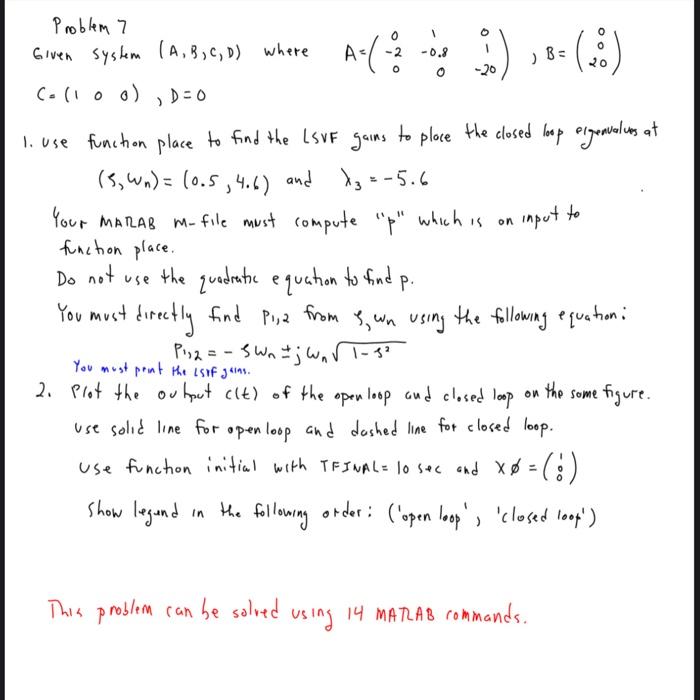 Problem 7
Given system (A,B,C,D) where A = ( 0 1 0 ; -2 -0.8 1 ; 0 0 -20 ) , B = ( 0 ; 0 ; 20 )
C = (1 0 0) , D = 0
1. Use function place to find the LSVF gains to place the closed loop eigenvalues at
(ζ, Wn) = (0.5, 4.6) and λ3 = -5.6
Your MATLAB m-file must compute "p" which is on input to
function place.
Do not use the quadratic equation to find p.
You must directly find P1,2 from ζ, Wn using the following equation:
P1,2 = -ζWn ± jWn√1-ζ²
You must print the LSVF gains.
2. Plot the output c(t) of the open loop and closed loop on the same figure.
Use solid line for open loop and dashed line for closed loop.
Use function initial with TFINAL = 10 sec and XØ = ( 1 ; 0 ; 0 )
Show legend in the following order: ('open loop', 'closed loop')
This problem can be solved using 14 MATLAB commands.